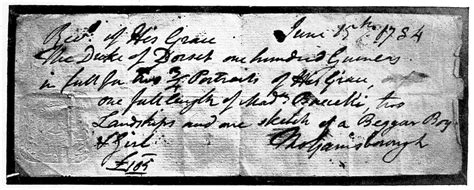 Recd. of His Grace June 15th 1784
The Duke of Dorset one hundred Guineas
in full for two ¾ Portraits of His Grace,
one full length of Madm Baccelli, two
Landskips and one sketch of a Beggar Boy
& Girl Tho Gainsborough
£105